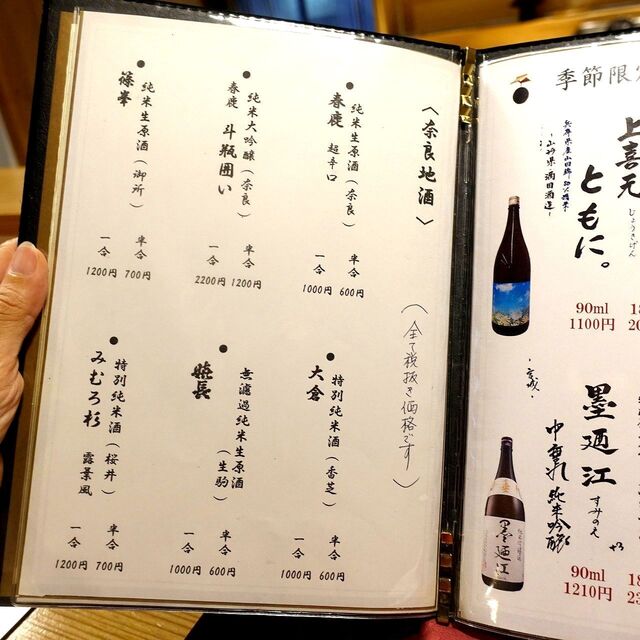 〈奈良地酒〉
（全て税抜き価格です）
● 純米生原酒（奈良）
春鹿 超辛口
半合 600円
一合 1000円
● 純米大吟醸（奈良）
春鹿 斗瓶囲い
半合 1200円
一合 2200円
● 純米生原酒（御所）
篠峯
半合 700円
一合 1200円
● 特別純米酒（香芝）
大倉
半合 600円
一合 1000円
● 無濾過純米生原酒（生駒）
嬉長
半合 600円
一合 1000円
● 特別純米酒（桜井）
みむろ杉 露葉風
半合 700円
一合 1200円
季節限
上喜元
じょうきげん
ともに。
兵庫県産山田錦
山形県 酒田酒造
90ml
1100円
宮城
墨廼江
すみのえ
中垂れ 純米吟醸
90ml
1210円
墨廼江